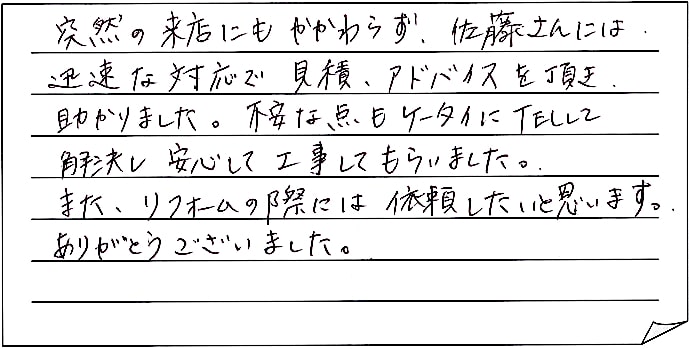 突然の来店にもかかわらず、佐藤さんには、
迅速な対応で見積、アドバイスを頂き、
助かりました。不安な点もケータイにTELして
解決し安心して工事してもらいました。
また、リフォームの際には依頼したいと思います。
ありがとうございました。